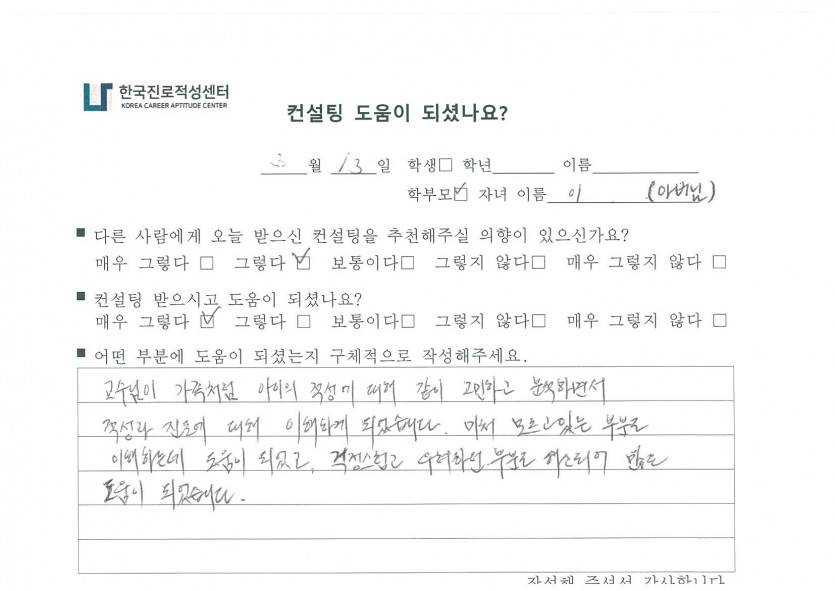 한국진로적성센터
KOREA CAREER APTITUDE CENTER
컨설팅 도움이 되셨나요?
3 월 13 일 학생□ 학년 이름
학부모☑ 자녀 이름 이 (아버님)
■ 다른 사람에게 오늘 받으신 컨설팅을 추천해주실 의향이 있으신가요?
매우 그렇다 □ 그렇다 ☑ 보통이다□ 그렇지 않다□ 매우 그렇지 않다 □
■ 컨설팅 받으시고 도움이 되셨나요?
매우 그렇다 ☑ 그렇다 □ 보통이다□ 그렇지 않다□ 매우 그렇지 않다 □
■ 어떤 부분에 도움이 되셨는지 구체적으로 작성해주세요.
교수님이 가족처럼 아이의 적성에 대해 같이 고민하고 분석하면서
적성과 진로에 대해 이해하게 되었습니다. 미처 모르고있는 부분도
이해하는데 도움이 되었고, 걱정스럽고 우려하던 부분도 해소되어 많은
도움이 되었습니다.
작성해 주셔서 감사합니다